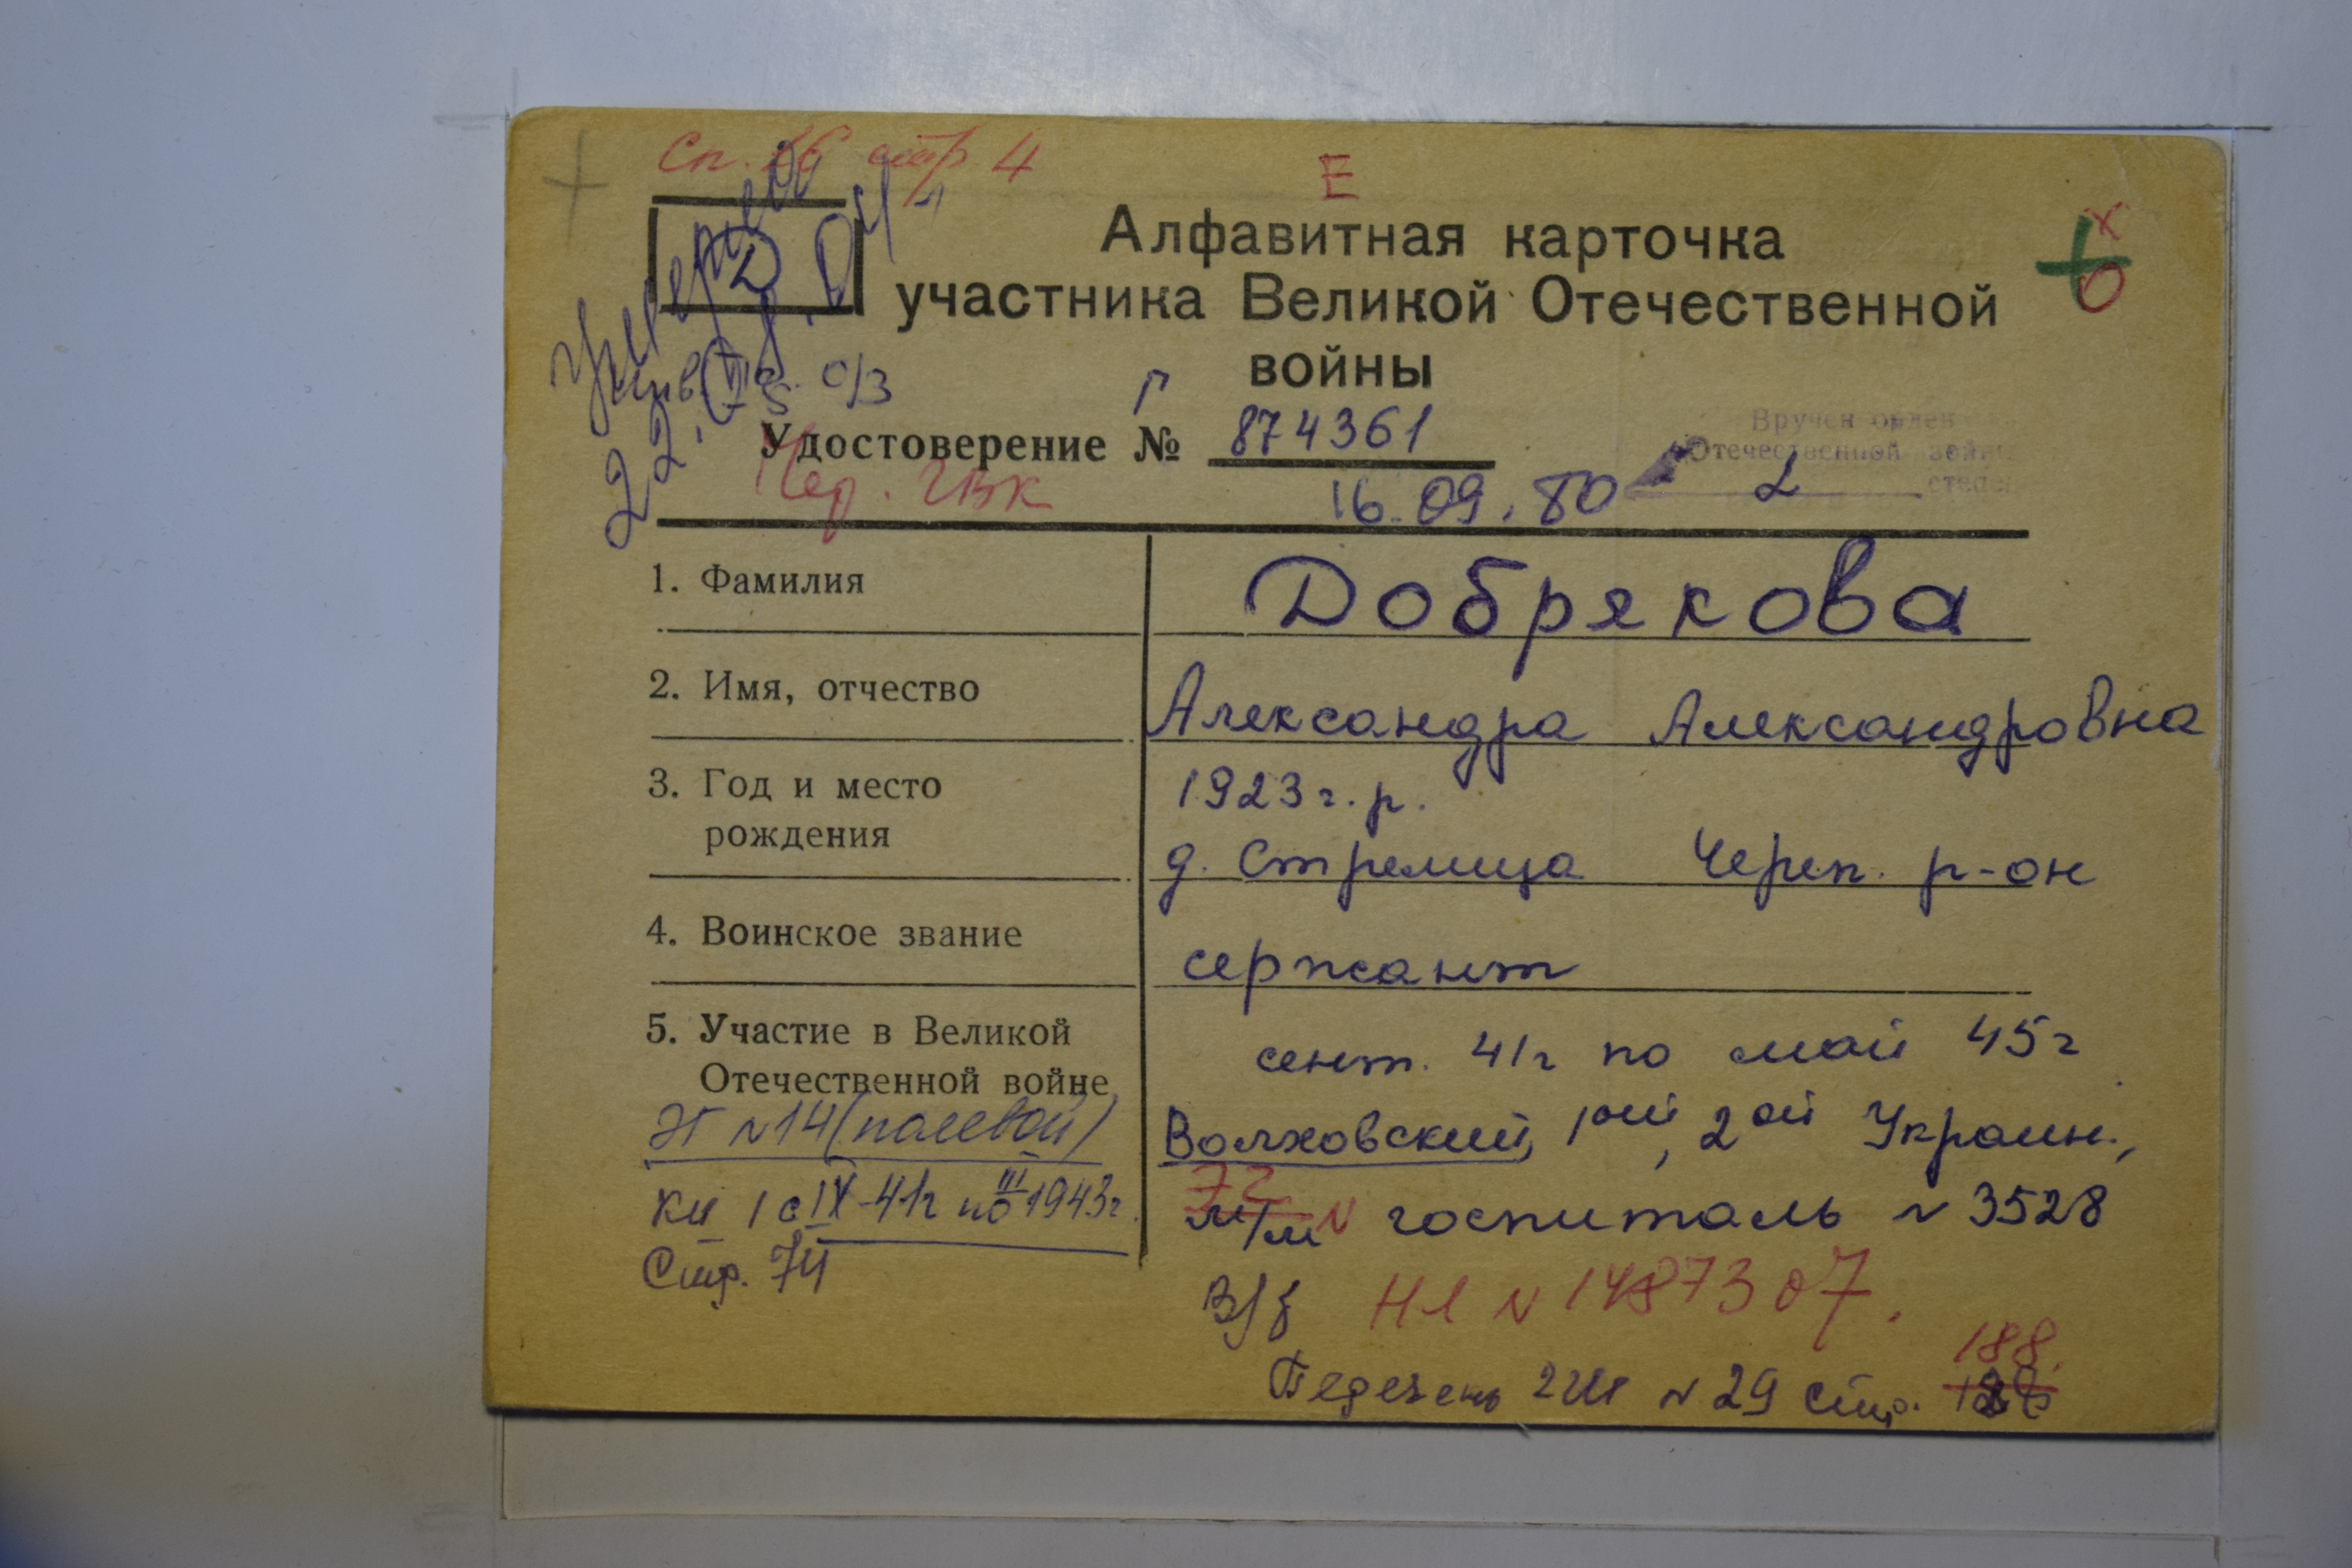 Сп. 16 стр 4
Е
Д
Алфавитная карточка
участника Великой Отечественной
войны
Умерла
22.
о/з
Г
Удостоверение № 874361
Чер. ГВК
16.09.80
Вручен орден
Отечественной войны
2 степени
1. Фамилия Добрякова
2. Имя, отчество Александра Александровна
3. Год и место рождения 1923 г.р.
д. Стрелица Череп. р-он
4. Воинское звание сержант
5. Участие в Великой Отечественной войне
сент. 41г по май 45г
Волховский, 1ый, 2ой Украин.,
госпиталь N 3528
ЭГ N 14 (полевой)
кн 1 с IX-41г по III 1943г.
Стр. 74
в/ч
НЛ N 1487307.
188.
Перечень ГШ N 29 стр.